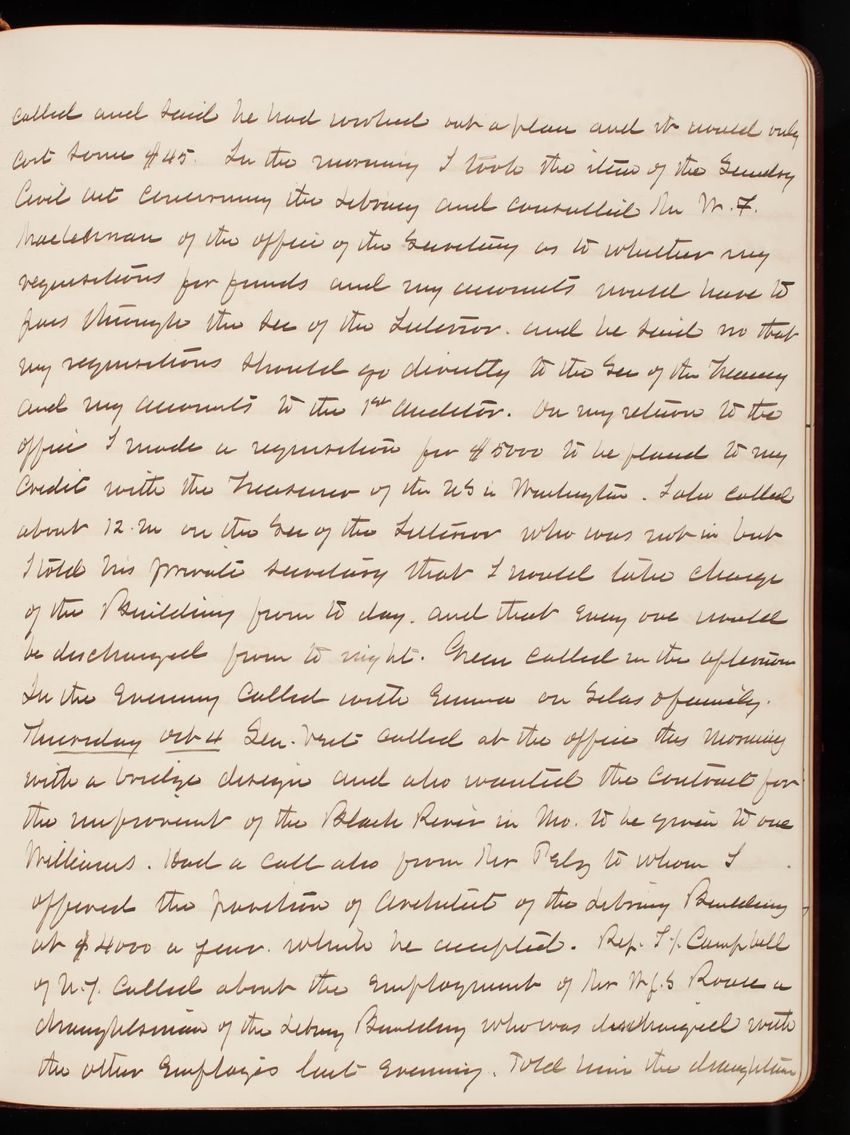 called and said he had worked out a plan and it would only
cost some $45. In the morning I took the item of the Sundry
Civil act concerning the Library and consulted Mr W. F.
of the office of the Secretary as to whether my
requisitions for funds and my accounts would have to
pass through the Sec of the Interior. and he said no that
my requisitions should go directly to the Sec of the Treasury
and my accounts to the 1st Auditor. On my return to the
office I made a requisition for $5000 to be placed to my
Credit with the Treasurer of the US in Washington. I also called
about 12. M on the Sec of the Interior who was not in but
I told his private secretary that I would take charge
of the Building from to day. and that every one would
be discharged from to night. Green called in the afternoon
In the Evening called with Emma on family.
Thursday Oct 4 Gen. called at the office this morning
with a bridge design and also wanted the contract for
the improvemt of the Black River in Mo. to be given to one
Williams. Had a call also from Mr Pelz to whom I
offered the position of Architect of the Library Building
at $4000 a year. which he accepted. Rep. T. J. Campbell
of N.Y. called about the employment of Mr W. J. S a
draughtsman of the Library Building who was discharged with
the other Employes last evening. Told him the draughtsmen